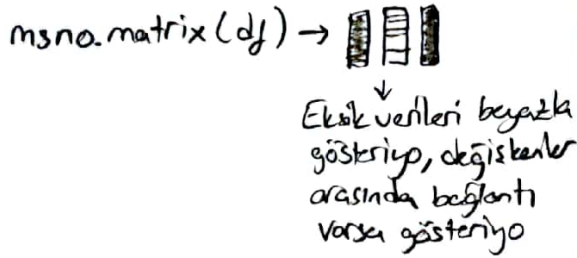 msno.matrix(df) →
↓
Eksik verileri beyazla
gösteriyo, değişkenler
arasında bağlantı
varsa gösteriyo